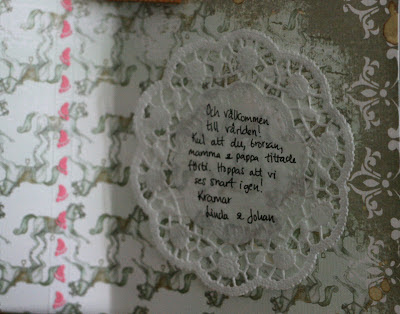 Och välkommen
till världen!
Kul att du, brorsan,
mamma & pappa tittade
förbi. Hoppas att vi
ses snart igen!
Kramar
Linda & Johan